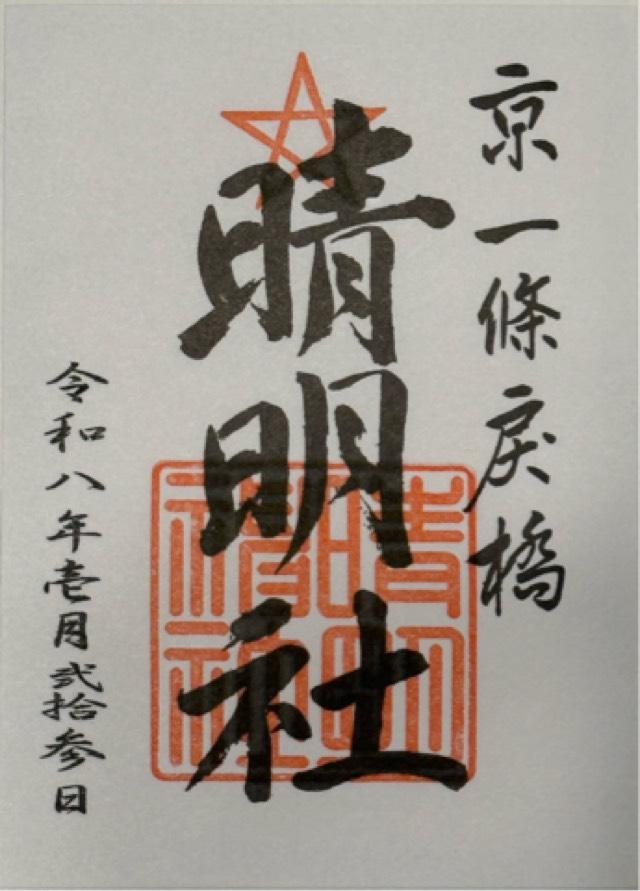 京一條戻橋
晴明社
令和八年壱月弐拾参日